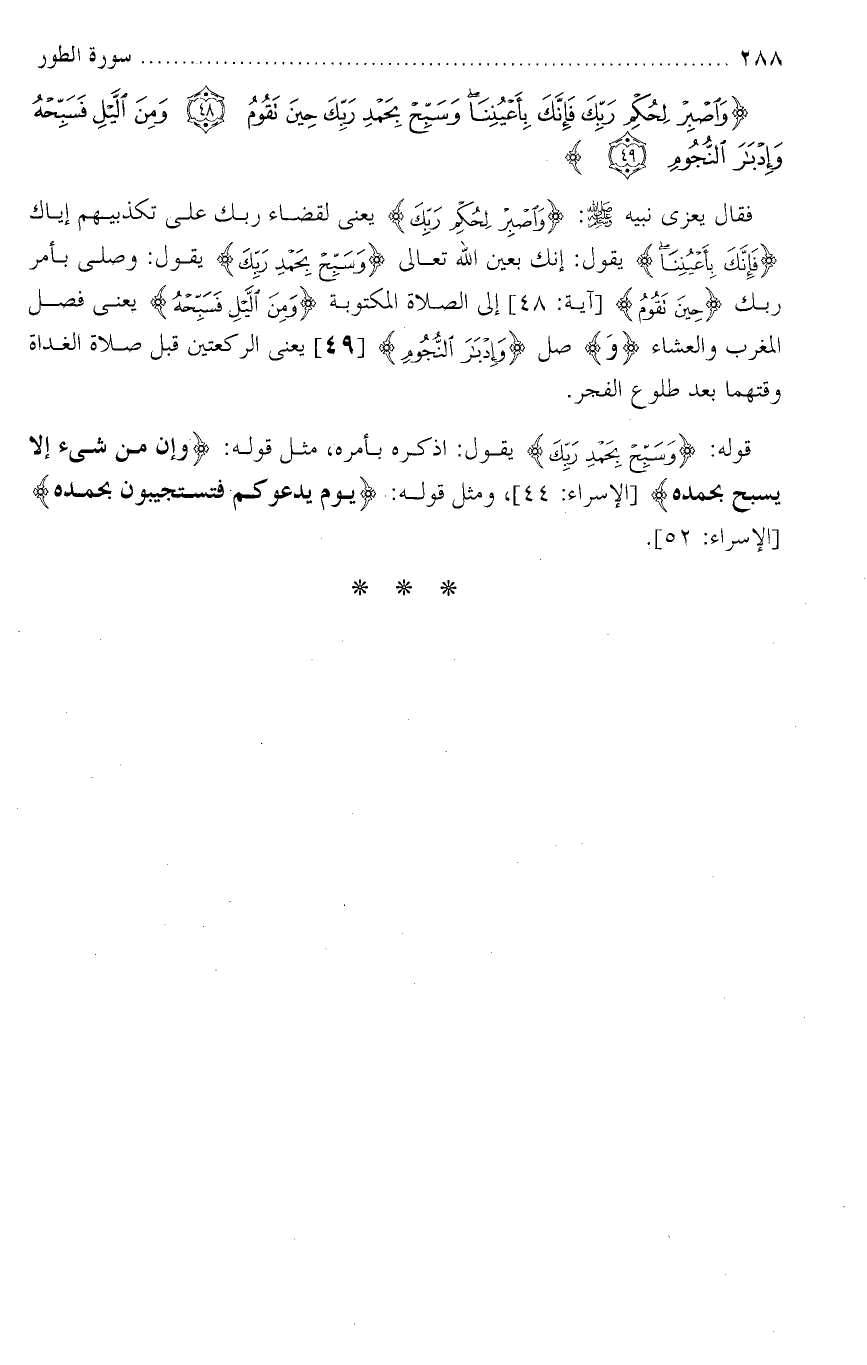 ٢٨٨ ........................................................................ سورة الطور
﴿وَٱصۡبِرۡ لِحُكۡمِ رَبِّكَ فَإِنَّكَ بِأَعۡيُنِنَاۖ وَسَبِّحۡ بِحَمۡدِ رَبِّكَ حِينَ تَقُومُ ٤٨ وَمِنَ ٱلَّيۡلِ فَسَبِّحۡهُ
وَإِدۡبَٰرَ ٱلنُّجُومِ ٤٩ ﴾
فقال يعزى نبيه ﷺ: ﴿وَٱصۡبِرۡ لِحُكۡمِ رَبِّكَ﴾ يعنى لقضاء ربك على تكذيبهم إياك
﴿فَإِنَّكَ بِأَعۡيُنِنَاۖ﴾ يقول: إنك بعين الله تعالى ﴿وَسَبِّحۡ بِحَمۡدِ رَبِّكَ﴾ يقول: وصلى بأمر
ربك ﴿حِينَ تَقُومُ﴾ [آية: ٤٨] إلى الصلاة المكتوبة ﴿وَمِنَ ٱلَّيۡلِ فَسَبِّحۡهُ﴾ يعنى فصل
المغرب والعشاء ﴿وَ﴾ صل ﴿وَإِدۡبَٰرَ ٱلنُّجُومِ﴾ [٤٩] يعنى الركعتين قبل صلاة الغداة
وقتهما بعد طلوع الفجر.
قوله: ﴿وَسَبِّحۡ بِحَمۡدِ رَبِّكَ﴾ يقول: اذكره بأمره، مثل قوله: ﴿وإن من شىء إلا
يسبح بحمده﴾ [الإسراء: ٤٤]، ومثل قوله: ﴿يوم يدعوكم فتستجيبون بحمده﴾
[الإسراء: ٥٢].
* * *